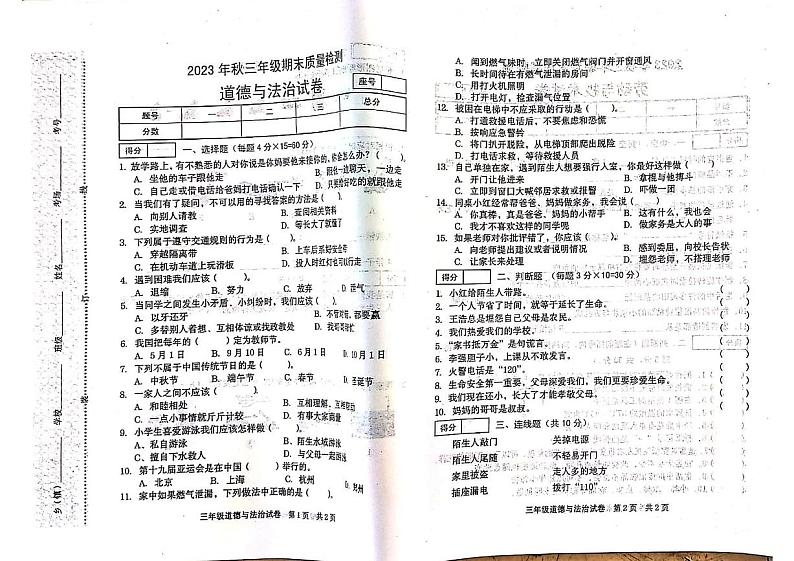 2023 年秋三年级期末质量检测
道德与法治试卷
座号
题号 一 二 三 总分
分数
得分 一、选择题（每题 4 分×15=60 分）
1. 放学路上，有不熟悉的人对你说是你妈要他来接你的，你会怎么办？（ ）
A. 坐他的车子跟他走 B. 跟他一边聊天，一边走
C. 自己走或借电话给爸妈打电话确认一下 D. 只要给好吃的就跟他走
2. 当我们有了疑问，不可以用的寻找答案的方法是（ ）。
A. 向别人请教 B. 查阅相关资料
C. 实地调查 D. 等长大了就懂了
3. 下列属于遵守交通规则的行为是（ ）。
A. 穿越隔离带 B. 上车后系好安全带
C. 在机动车道上玩滑板 D. 没人时红灯也可以行走
4. 遇到困难我们应该（ ）。
A. 退缩 B. 努力 C. 放弃 D. 丧气
5. 当同学之间发生小矛盾、小纠纷时，我们应该（ ）。
A. 以牙还牙 B. 不管对错，都要赢
C. 多替别人着想、互相体谅或找政教处 D. 我哭哥哥忙
6. 我国把每年的（ ）定为教师节。
A. 5 月 1 日 B. 9 月 10 日 C. 6 月 1 日 D. 10 月 1 日
7. 下列不属于中国传统节日的是（ ）。
A. 中秋节 B. 端午节 C. 春节 D. 圣诞节
8. 一家人之间不应该（ ）。
A. 和睦相处 B. 互相理解、互相帮助
C. 一点小事情就斤斤计较 D. 有事大家商量
9. 小学生喜爱游泳我们应该怎样做（ ）。
A、私自游泳 B、陌生水域游泳
C、擅自下水救人 D、与父母一起游泳
10. 第十九届亚运会是在中国（ ）举行的。
A. 北京 B. 上海 C. 杭州 D. 郑州
11. 家中如果燃气泄漏，下列做法中正确的是（ ）。
三年级道德与法治试卷 第 1 页 共 2 页
乡（镇） 学校 班级 姓名 考场 考号
装 订 线
A. 闻到燃气味时，立即关闭燃气阀门并开窗通风
B. 长时间待在有燃气泄漏的房间
C. 用打火机照明
D. 打开电灯，检查漏气位置
12. 被困在电梯中不应采取的行动是（ ）。
A. 打道救援电话后，不要焦虑和恐慌
B. 按响应急警铃
C. 将门扒开脱险，从电梯顶部爬出脱险
D. 打电话求救，等待救援人员
13. 自己单独在家，遇到陌生人想要强行入室，你最好这样做（ ）
A. 开门让他进来 B. 拿棍与他搏斗
C. 立即到窗口大喊邻居求救或报警 D. 吓做一团
14. 同桌小红经常帮爸爸、妈妈做家务，我会说（ ）
A. 你真棒，真是爸爸、妈妈的小帮手 B. 这有什么，我也会
C. 我才不喜欢这样的同学呢 D. 做家务是大人的事
15. 如果老师对你批评错了，你应该（ ）。
A. 向老师提出建议或者说明情况 B. 感到委屈，向校长告状
C. 让家长来处理 D. 埋怨老师，不搭理老师
得分 二、判断题（每题 3 分×10=30 分）
1. 小红给陌生人带路。（ ）
2. 一个人节省了时间，就等于延长了生命。（ ）
3. 王浩总是埋怨自己父母是农民。（ ）
4. 我们热爱我们的学校。（ ）
5. “家书抵万金”是句谎言。（ ）
6. 李强胆子小，上课从不敢发言。（ ）
7. 火警电话是“120”。（ ）
8. 生命安全第一重要，父母深爱我们，我们更要珍爱生命。（ ）
9. 我们现在还小，长大了才能孝敬父母。（ ）
10. 妈妈的哥哥是叔叔。（ ）
得分 三、连线题（共 10 分）
陌生人敲门 关掉电源
陌生人尾随 不轻易开门
家里被盗 走人多的地方
插座漏电 拨打“110”
三年级道德与法治试卷 第 2 页 共 2 页